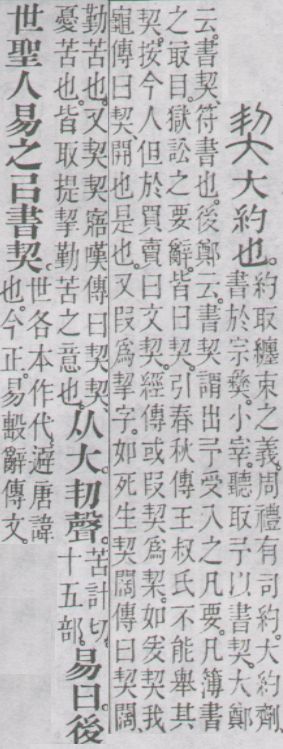 契大約也。約取纏束之義。周禮有司約。大約劑
書於宗彝。小宰。聽取予以書契。大鄭
云。書契。符書也。後鄭云。書契謂出予受入之凡要。凡簿書
之冣目。獄訟之要辭。皆曰契。引春秋傳王叔氏不能舉其
契。按今人但於買賣曰文契。經傳或叚契爲栔。如爰契我
龜傳曰契、開也是也。又叚爲挈字。如死生契闊傳曰契闊、
勤苦也。又契契寤嘆傳曰契契、
憂苦也。皆取提挈勤苦之意也。从大㓞聲。苦計切。
十五部。易曰後
世聖人易之㠯書契。世各本作代。避唐諱
也。今正。易毄辭傳文。